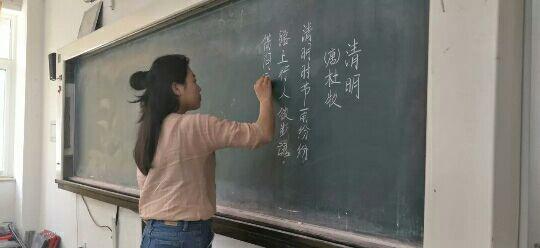 清明
(唐)杜牧
清明时节雨纷纷,
路上行人欲断魂。
借问